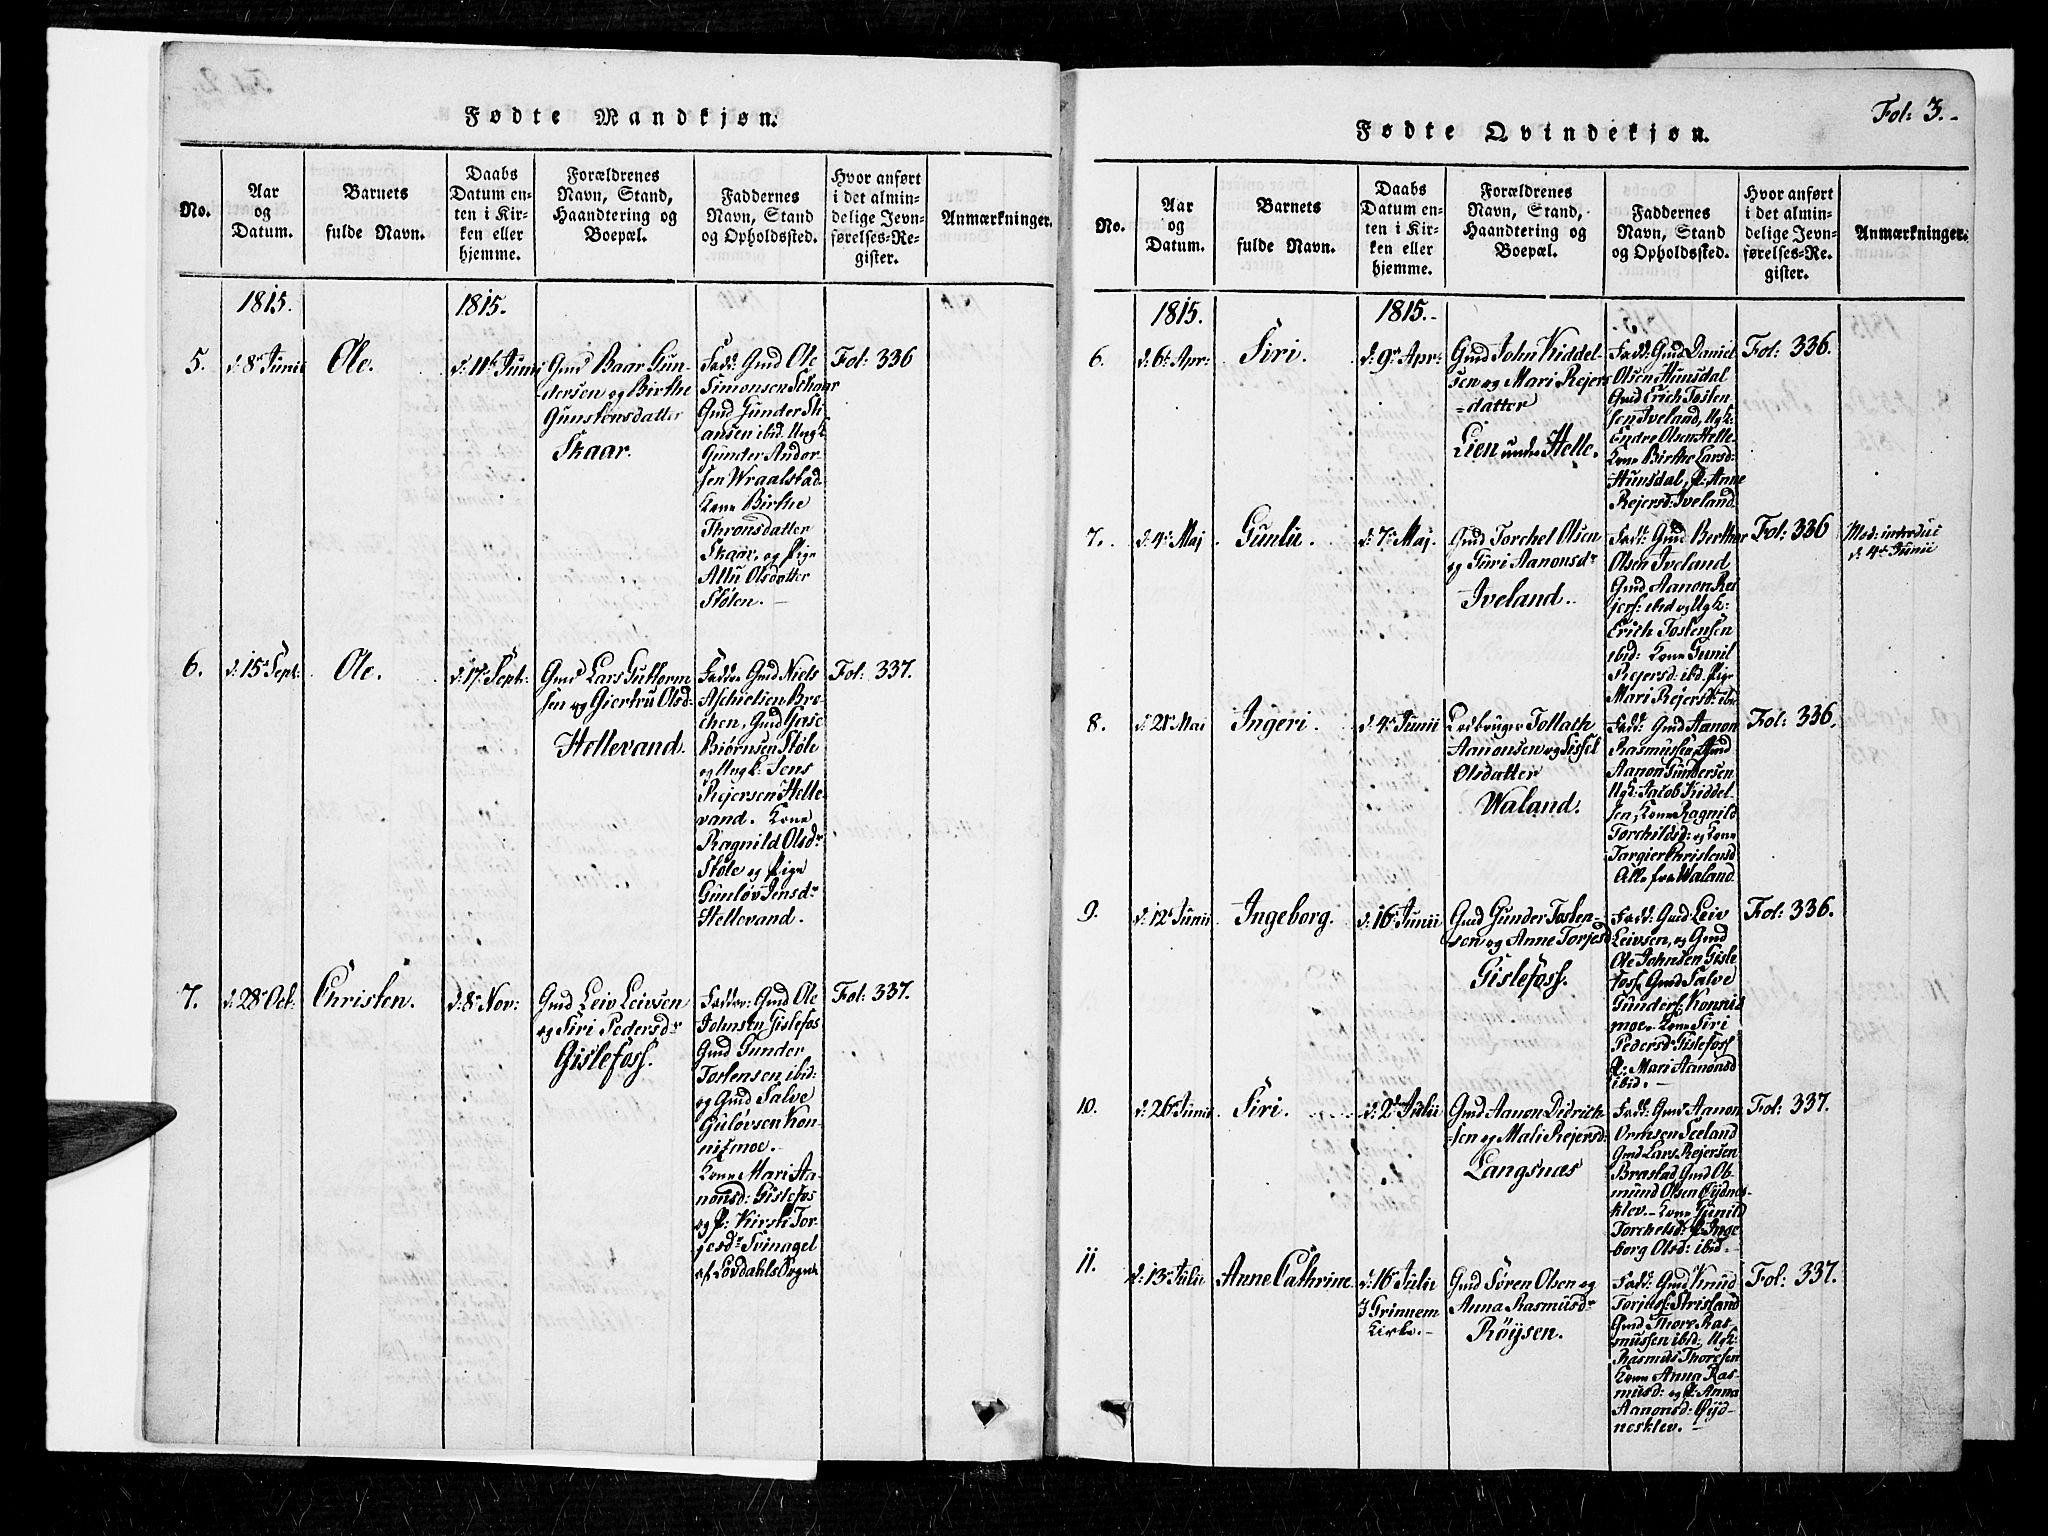 Fødte Mandkjøn.
No.
Aar
og
Datum.
Barnets
fulde Navn.
Daabs
Datum en-
ten i Kir-
ken eller
hjemme.
Forældrenes
Navn, Stand,
Haandtering og
Boepæl.
Faddernes
Navn, Stand
og Opholdssted.
Hvor anført
i det almin-
delige Jevn-
førelses-Re-
gister.
Anmærkninger.
1815.
1815.
5.
d: 8de Junii
Ole.
d: 11te Junii
Gmd Baar Gun-
dersen og Birthe
Gunstensdatter
Skaar.
Fadd: Gmd Ole
Simonsen Skaar
Gmd Gunder Sti-
ansen ibid. Ungk:
Gunder Andor-
sen Wraalstad
Kone Birthe
Thronsdatter
Skaar, og Pige
Allu Olsdatter
Stølen. —
Fol: 336
6.
d: 15de Sept:
Ole.
d: 17de Sept:
Gmd Lars Guttorm-
sen og Giertru Olsd:
Hellevand.
Faddre Gmd Niels
Aschielsen Bre-
chen, Gmd Gase
Biørnsen Støle
og Ungk: Jens
Rejersen Helle-
vand. Kone
Ragnild Olsdr
Støle og Pige
Gunløv Jensdr
Hellevand.
Fol: 337.
7.
d: 28de Oct:
Christen.
d: 8de Nov:
Gmd Leiv Leivsen
og Siri Pedersdr
Gislefoss.
Faddre: Gmd Ole
Johnsen Gislefos
Gmd Gunder
Tostensen ibid:
og Gmd Salve
Guløvsen Kon-
nismoe.
Kone Mari Aa-
nonsd: Gislefos
og P: Kirsti Tor-
jesdr Svinagel
af Lovdahls Sogne
Fol: 337.
Fol: 3.-
Fødte Qvindekjøn.
No.
Aar
og
Datum.
Barnets
fulde Navn.
Daabs
Datum en-
ten i Kir-
ken eller
hjemme.
Forældrenes
Navn, Stand,
Haandtering og
Boepæl.
Faddernes
Navn, Stand
og Opholdssted.
Hvor anført
i det almin-
delige Jevn-
førelses-Re-
gister.
Anmærkninger.
1815.
1815.
6.
d: 6te Apr:
Siri.
d: 9de Apr:
Gmd John Kiddel-
sen og Mari Rejers
=datter
Lien under Helle.
Fadd: Gmd Daniel
Olsen Hunsdal
Gmd Erich Tosten
sen Iveland, Ugk:
Endre Olsen Helle.
Kone Birthe Larsd:
Hunsdal, P: Anne
Rejersd: Iveland.
Fol: 336.
7.
d: 4de Maj
Gunlu.
d: 7de Maj.
Gmd Torchel Olsen
og Turi Aanonsdr
Iveland.
Fadd: Gmd Berthor
Olsen Iveland
Gmd Aanon Rei
jers: ibid og Ugk:
Erich Tostensen
ibid: Kone Gunil
Rejersd: ibd. Pige
Mari Rejersdr ibd
Fol: 336
Mod: introduc
d: 4de Junii
8.
d: 21de Mai
Ingeri.
d: 4de Junii
Ledbruger Tollath
Aanonsen og Sissel
Olsdatter
Waland.
Fadd: Gmd Aanon
Rasmussen, Gmd
Aanon Gundersen
Ugk: Jacob Kiddel
sen, Kone Ragnild
Torchildsd: og Kone
Targier Christensd
Alle fra Waland.
Fol: 336.
9.
d: 12te Junii
Ingeborg.
d: 16de Junii
Gmd Gunder Tosten-
sen og Anne Torjesd
Gislefoss.
Fadd: Gmd Leiv
Leivsen, og Gmd
Ole Johnsen Gisle
foss, Gmd Salve
Gunders: Konnis
moe. Kone Siri
Pedersdr Gislefoss
P: Mari Aanonsd
ibid. —
Fol: 336.
10.
d: 26de Junii
Siri.
d: 2de Julii
Gmd Aanon Didrich
sen og Mali Rejersd:
Langsnæs
Fadd: Gmd Aanon
Ormsen Seeland
Gmd Lars Rejersen
Brastad, Gmd Os-
mund Olsen Øydnes-
klev. Kone Gunild
Torchelsd: P: Inge
borg Olsd: ibid.
Fol: 337.
11.
d: 13de Julii
Anne Cathrine
d: 16de Julii
I Grinnem
Kirke. —
Gmd Søren Olsen og
Anna Rasmusdr
Røysen.
Fadd: Gmd Knud
Torjuss: Strisland
Gmd Thore Ras-
mussen ibid: Ugk:
Rasmus Thoresen
Kone Anna Ras-
musd: og P: Anna
Aanonsd: Øyd-
nesklev. —
Fol: 337.